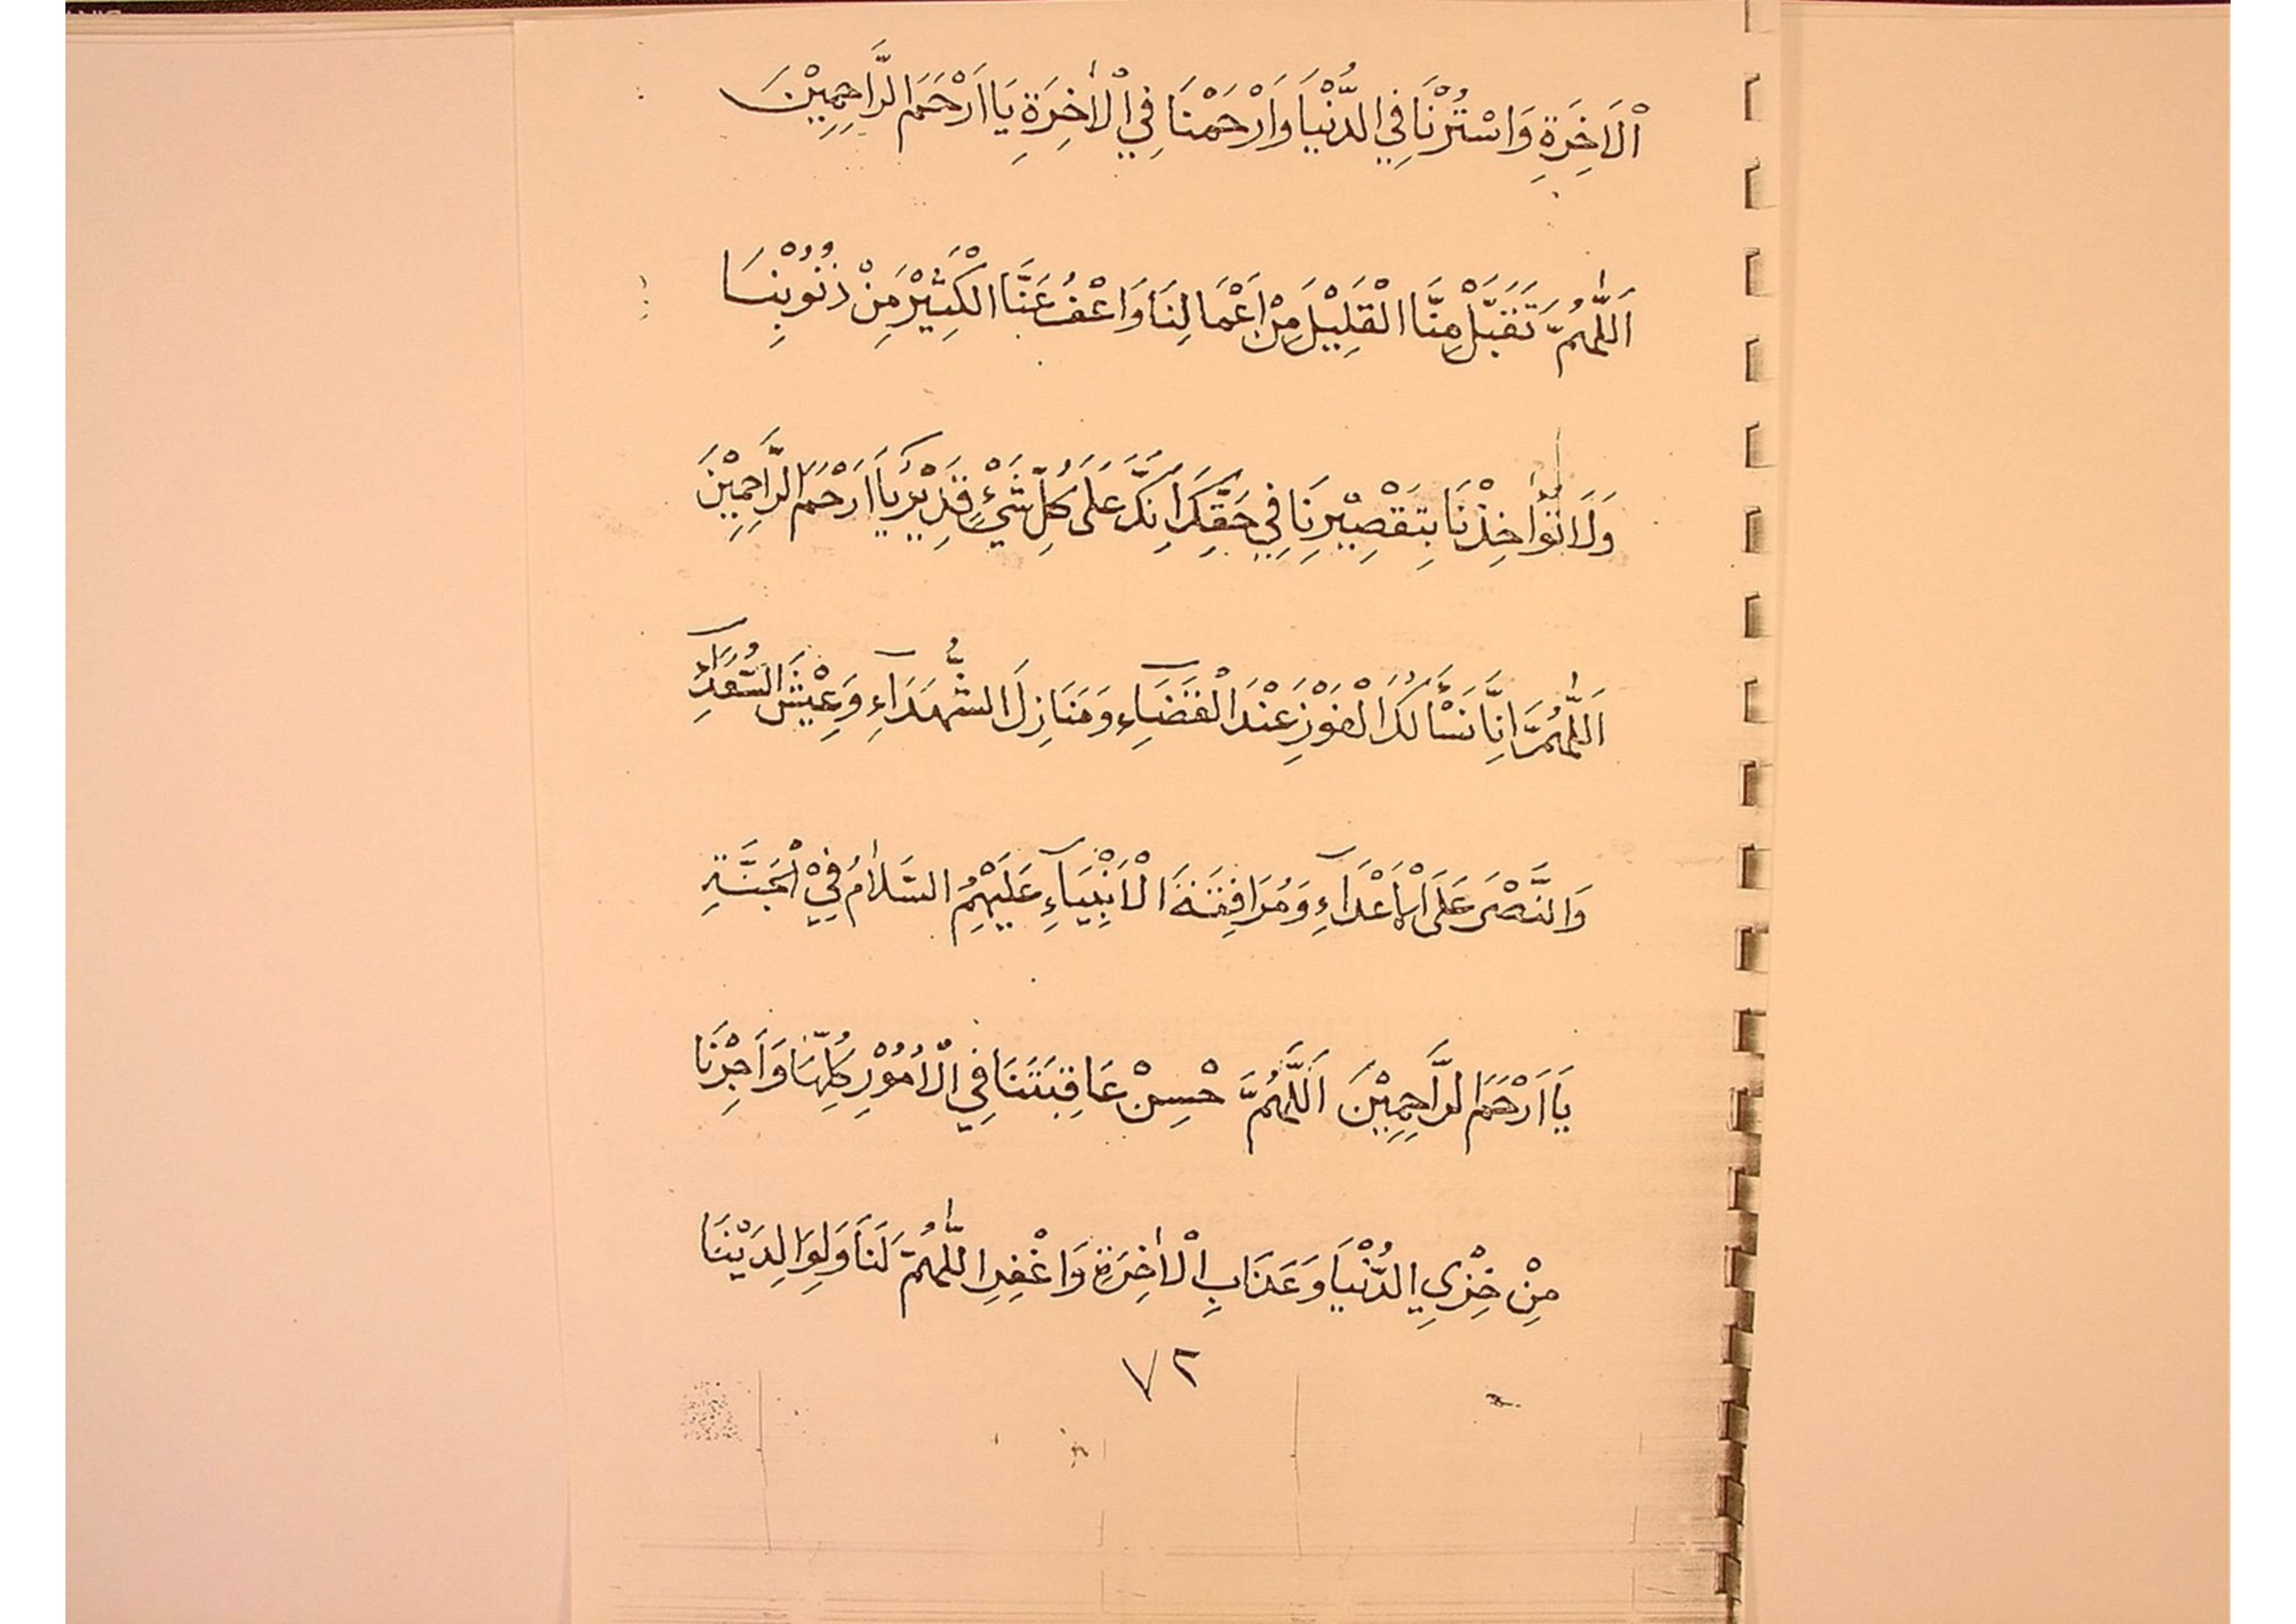 اْلَاخِرَةِ وَاسْتُرْنَا فِي الدُّنْيَا وَارْحَمْنَا فِي اْلاٰخِرَةِ يَا اَرْحَمَ الرَّاحِمِيْنَ
اَللّٰهُمَّ تَقَبَّلْ مِنَّا الْقَلِيْلَ مِنْ اَعْمَالِنَا وَاعْفُ عَنَّا الْكَثِيْرَ مِنْ ذُنُوْبِنَا
وَلَا تُؤَاخِذْنَا بِتَقْصِيْرِنَا فِي حَقِّكَ اِنَّكَ عَلَى كُلِّ شَيْءٍ قَدِيْرٌ يَا اَرْحَمَ الرَّاحِمِيْنَ
اَللّٰهُمَّ اِنَّا نَسْأَلُكَ الْفَوْزَ عِنْدَ الْقَضَآءِ وَمَنَازِلَ الشُّهَدَآءِ وَعِيْشَ السُّعَدَآءِ
وَالنَّصْرَ عَلَى اْلاَعْدَآءِ وَمُرَافَقَةَ اْلاَنْبِيَآءِ عَلَيْهِمُ السَّلاٰمُ فِيْ الْجَنَّةِ
يَا اَرْحَمَ الرَّاحِمِيْنَ اَللّٰهُمَّ حْسِنْ عَاقِبَتَنَا فِي اْلاُمُوْرِ كُلِّهَا وَاَجِرْنَا
مِنْ خِزْيِ الدُّنْيَا وَعَذَابِ اْلاٰخِرَةِ وَاغْفِرِ اللّٰهُمَّ لَنَا وَلِوَالِدَيْنَا
٧٢